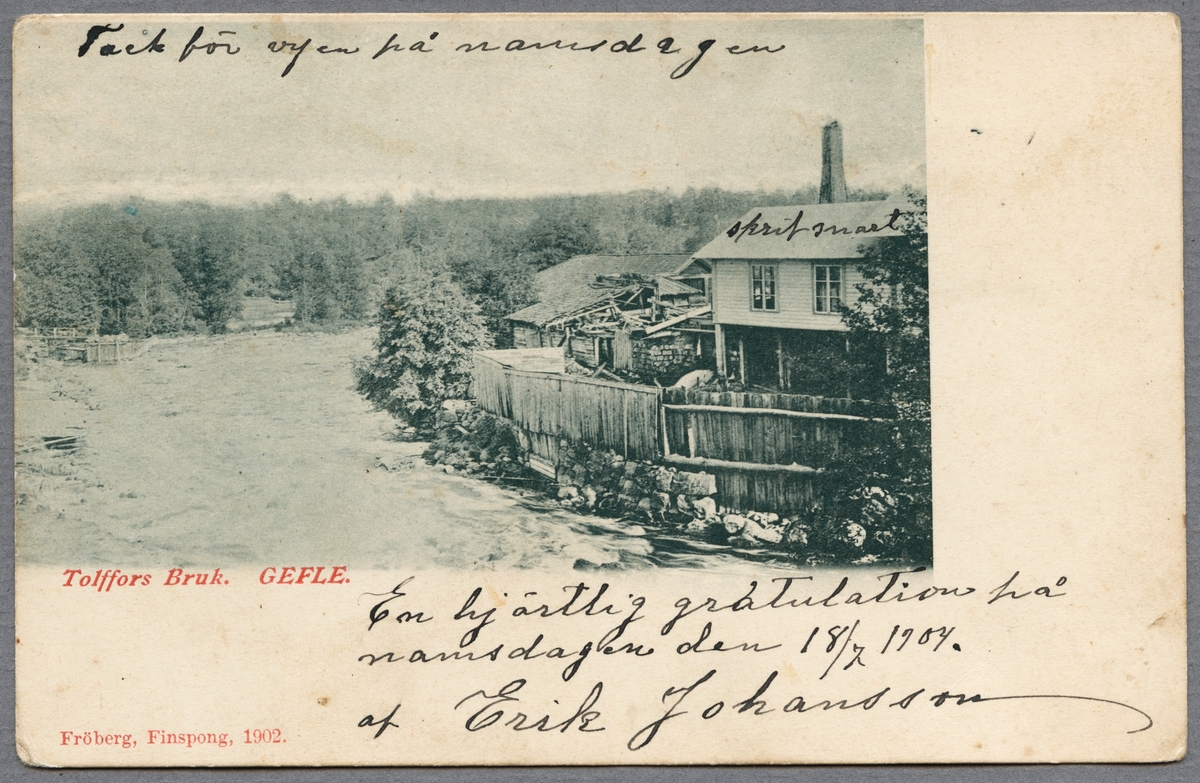 Tack för vyen på namsdagen
skrif snart
Tolffors Bruk. GEFLE.
En hjärtlig gratulation på
namsdagen den 18/7 1904.
af Erik Johansson
Fröberg, Finspong, 1902.